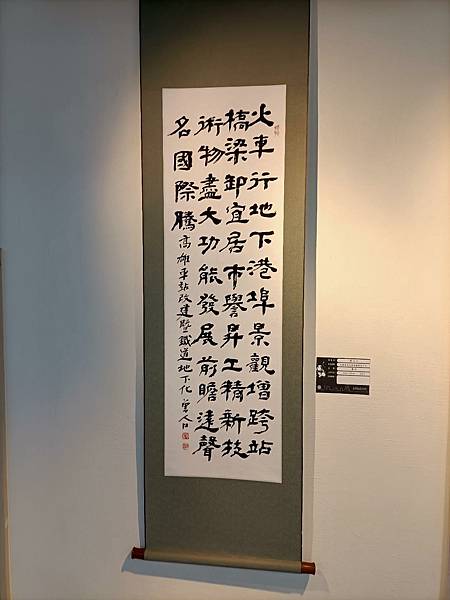 火車行地下港埠景觀增跨站
橋梁卸宜居市譽昇工精新技
術物盡大功能發展前瞻達聲
名國際騰高雄車站改建暨鐵道地下化曾人口